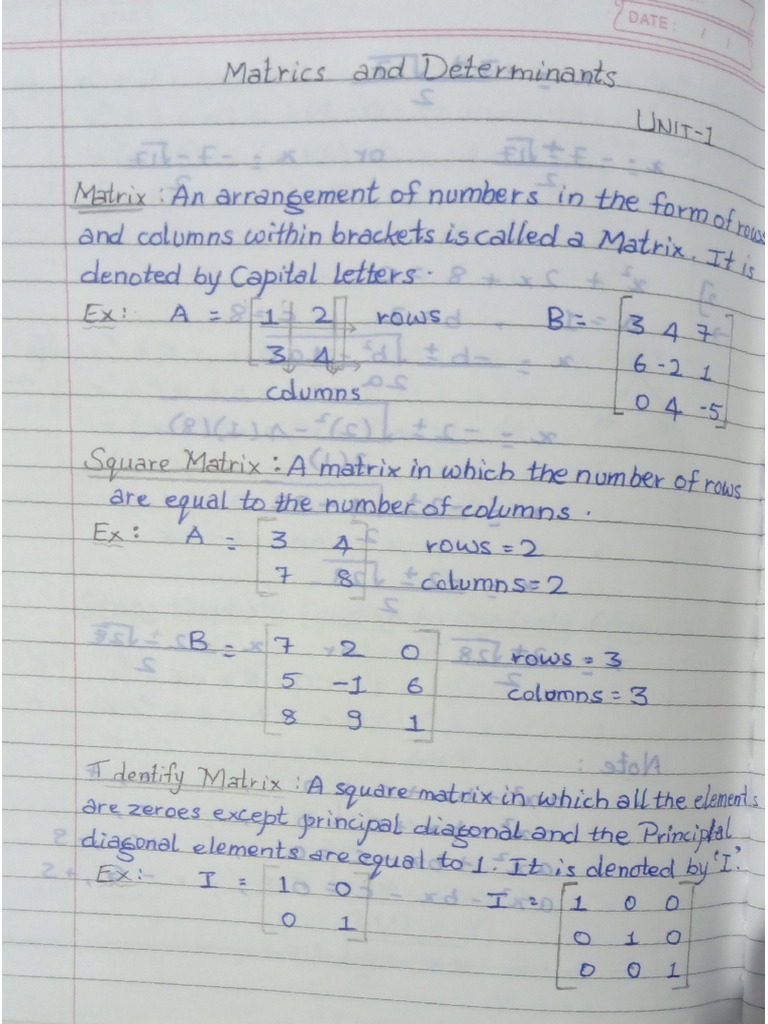 DATE: / /
Matrics and Determinants
UNIT-1
Matrix : An arrangement of numbers in the form of rows
and columns within brackets is called a Matrix. It is
denoted by Capital letters.
Ex: A = [1 2 rows B = [3 4 7
3 4] 6 -2 1
columns 0 4 -5]
Square Matrix : A matrix in which the number of rows
are equal to the number of columns.
Ex: A = [3 4 rows = 2
7 8] columns = 2
B = [7 -2 0 rows = 3
5 -1 6 columns = 3
8 9 1]
Identify Matrix : A square matrix in which all the elements
are zeroes except principal diagonal and the Principlal
diagonal elements are equal to 1. It is denoted by 'I'.
Ex:- I = [1 0 I = [1 0 0
0 1] 0 1 0
0 0 1]